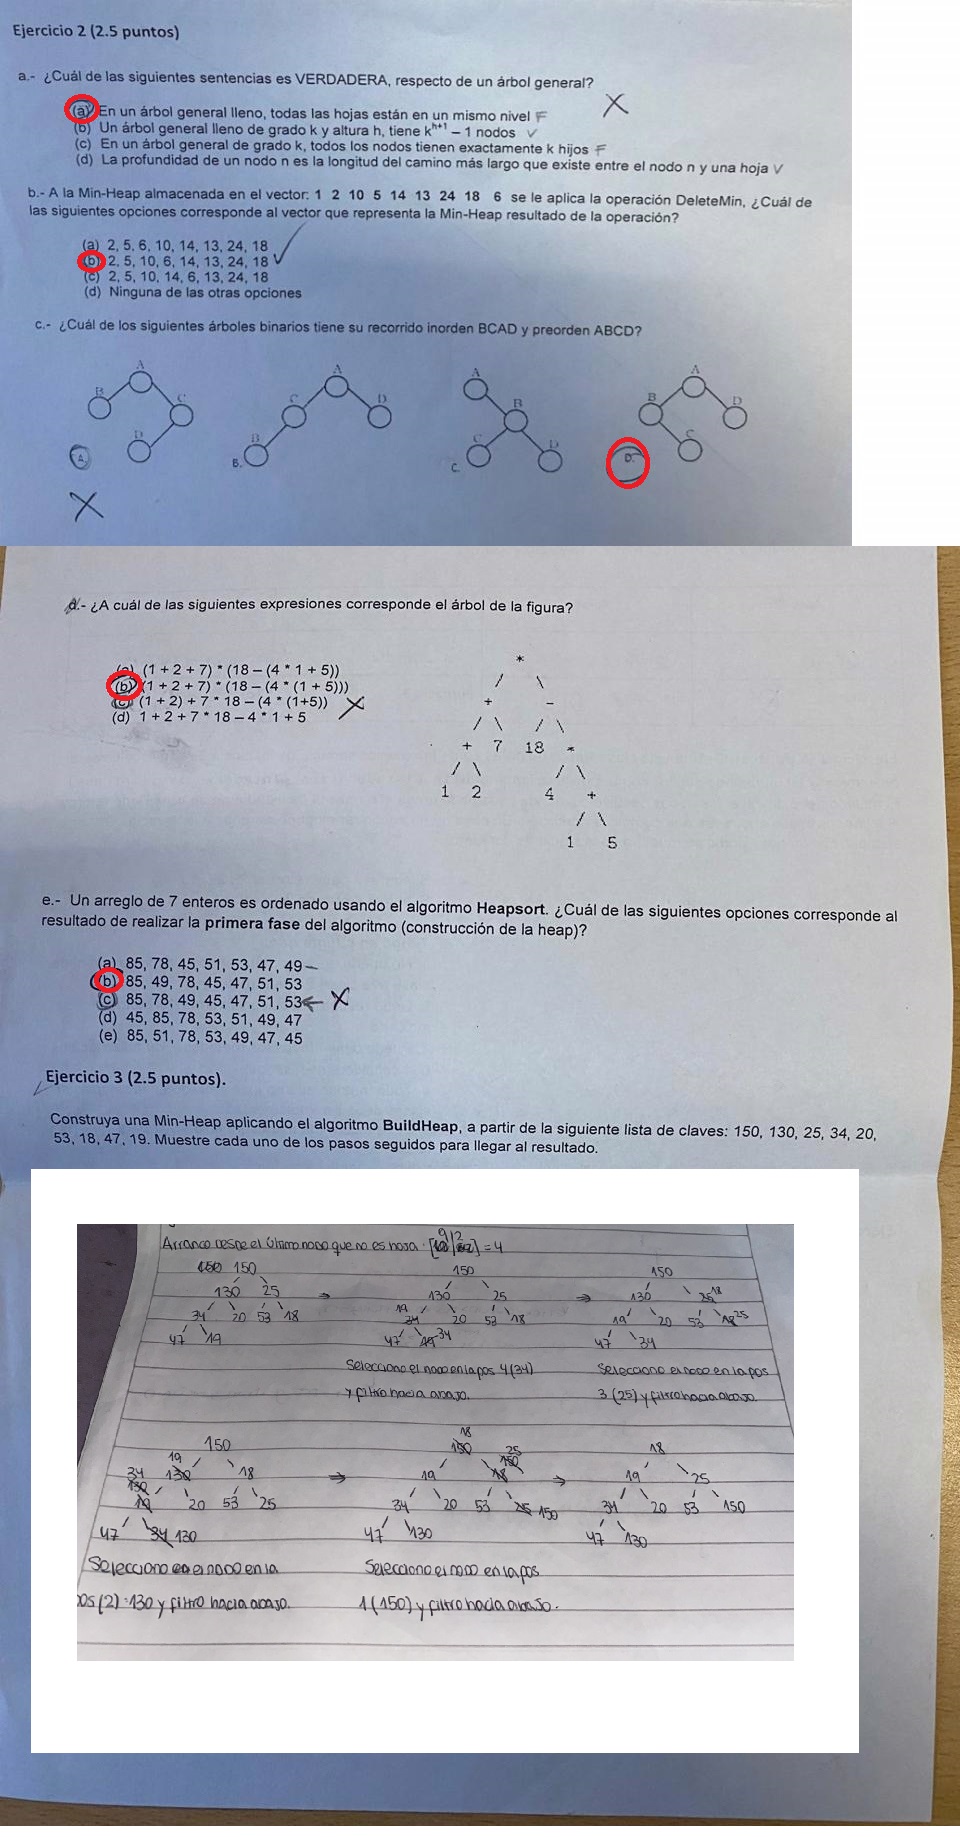 Ejercicio 2 (2.5 puntos)
a.- ¿Cuál de las siguientes sentencias es VERDADERA, respecto de un árbol general?
(a) En un árbol general lleno, todas las hojas están en un mismo nivel F
(b) Un árbol general lleno de grado k y altura h, tiene k^h+1 – 1 nodos ✓
(c) En un árbol general de grado k, todos los nodos tienen exactamente k hijos F
(d) La profundidad de un nodo n es la longitud del camino más largo que existe entre el nodo n y una hoja V
X
b.- A la Min-Heap almacenada en el vector: 1 2 10 5 14 13 24 18 6 se le aplica la operación DeleteMin, ¿Cuál de
las siguientes opciones corresponde al vector que representa la Min-Heap resultado de la operación?
(a) 2, 5, 6, 10, 14, 13, 24, 18
(b) 2, 5, 10, 6, 14, 13, 24, 18 ✓
(c) 2, 5, 10, 14, 6, 13, 24, 18
(d) Ninguna de las otras opciones
c.- ¿Cuál de los siguientes árboles binarios tiene su recorrido inorden BCAD y preorden ABCD?
A A A A
B C C D B B D
D B C D C
A. B. C. D.
X
d.- ¿A cuál de las siguientes expresiones corresponde el árbol de la figura?
(a) (1 + 2 + 7) * (18 – (4 * 1 + 5))
(b) (1 + 2 + 7) * (18 – (4 * (1 + 5)))
(c) (1 + 2) + 7 * 18 – (4 * (1+5)) X
(d) 1 + 2 + 7 * 18 – 4 * 1 + 5
*
/ \
+ -
/ \ / \
+ 7 18 *
/ \ / \
1 2 4 +
/ \
1 5
e.- Un arreglo de 7 enteros es ordenado usando el algoritmo Heapsort. ¿Cuál de las siguientes opciones corresponde al
resultado de realizar la primera fase del algoritmo (construcción de la heap)?
(a) 85, 78, 45, 51, 53, 47, 49 –
(b) 85, 49, 78, 45, 47, 51, 53
(c) 85, 78, 49, 45, 47, 51, 53 ← X
(d) 45, 85, 78, 53, 51, 49, 47
(e) 85, 51, 78, 53, 49, 47, 45
Ejercicio 3 (2.5 puntos).
Construya una Min-Heap aplicando el algoritmo BuildHeap, a partir de la siguiente lista de claves: 150, 130, 25, 34, 20,
53, 18, 47, 19. Muestre cada uno de los pasos seguidos para llegar al resultado.
Arranco desde el último nodo que no es hoja: [9/2] = 4
150 150 150
130 25 → 130 25 ⇒ 130 25 18
34 20 53 18 19 34 20 53 18 19 20 53 18 25
47 19 47 19 34 47 34
Selecciono el nodo en la pos. 4 (34)
y filtro hacia abajo.
Selecciono el nodo en la pos
3 (25) y filtro hacia abajo.
150 18 150 18
19 130 18 ⇒ 19 18 150 25 → 19 25
34 130 19 20 53 25 34 20 53 25 150 34 20 53 150
47 34 130 47 130 47 130
Selecciono el nodo en la
pos (2) 130 y filtro hacia abajo.
Selecciono el nodo en la pos
1 (150) y filtro hacia abajo.